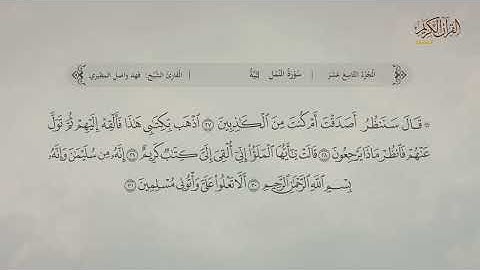 القرآن الكريم
الجزء التاسع عشر | سورة النمل | القارئ الشيخ. فهد واصل المطيري
۞ قَالَ سَنَنظُرُ أَصَدَقْتَ أَمْ كُنتَ مِنَ ٱلْكَـٰذِبِينَ ٢٧ ٱذْهَب بِّكِتَـٰبِى هَـٰذَا فَأَلْقِهْ إِلَيْهِمْ ثُمَّ تَوَلَّ
عَنْهُمْ فَٱنظُرْ مَاذَا يَرْجِعُونَ ٢٨ قَالَتْ يَـٰٓأَيُّهَا ٱلْمَلَؤُا۟ إِنِّىٓ أُلْقِىَ إِلَىَّ كِتَـٰبٌ كَرِيمٌ ٢٩ إِنَّهُۥ مِن سُلَيْمَـٰنَ وَإِنَّهُۥ
بِسْمِ ٱللَّهِ ٱلرَّحْمَـٰنِ ٱلرَّحِيمِ ٣٠ أَلَّا تَعْلُوا۟ عَلَىَّ وَأْتُونِى مُسْلِمِينَ ٣١